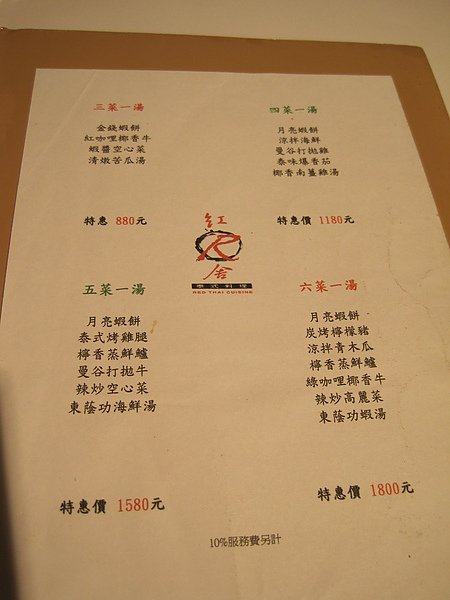 三菜一湯
金錢蝦餅
紅咖哩椰香牛
蝦醬空心菜
清燉苦瓜湯
特惠 880元
四菜一湯
月亮蝦餅
涼拌海鮮
曼谷打拋雞
泰味爆香茄
椰香南薑雞湯
特惠價 1180元
紅
R
舍
泰式料理
RED THAI CUISINE
五菜一湯
月亮蝦餅
泰式烤雞腿
檸香蒸鮮鱸
曼谷打拋牛
辣炒空心菜
東蔭功海鮮湯
特惠價 1580元
六菜一湯
月亮蝦餅
炭烤檸檬豬
涼拌青木瓜
檸香蒸鮮鱸
綠咖哩椰香牛
辣炒高麗菜
東蔭功蝦湯
特惠價 1800元
10%服務費另計